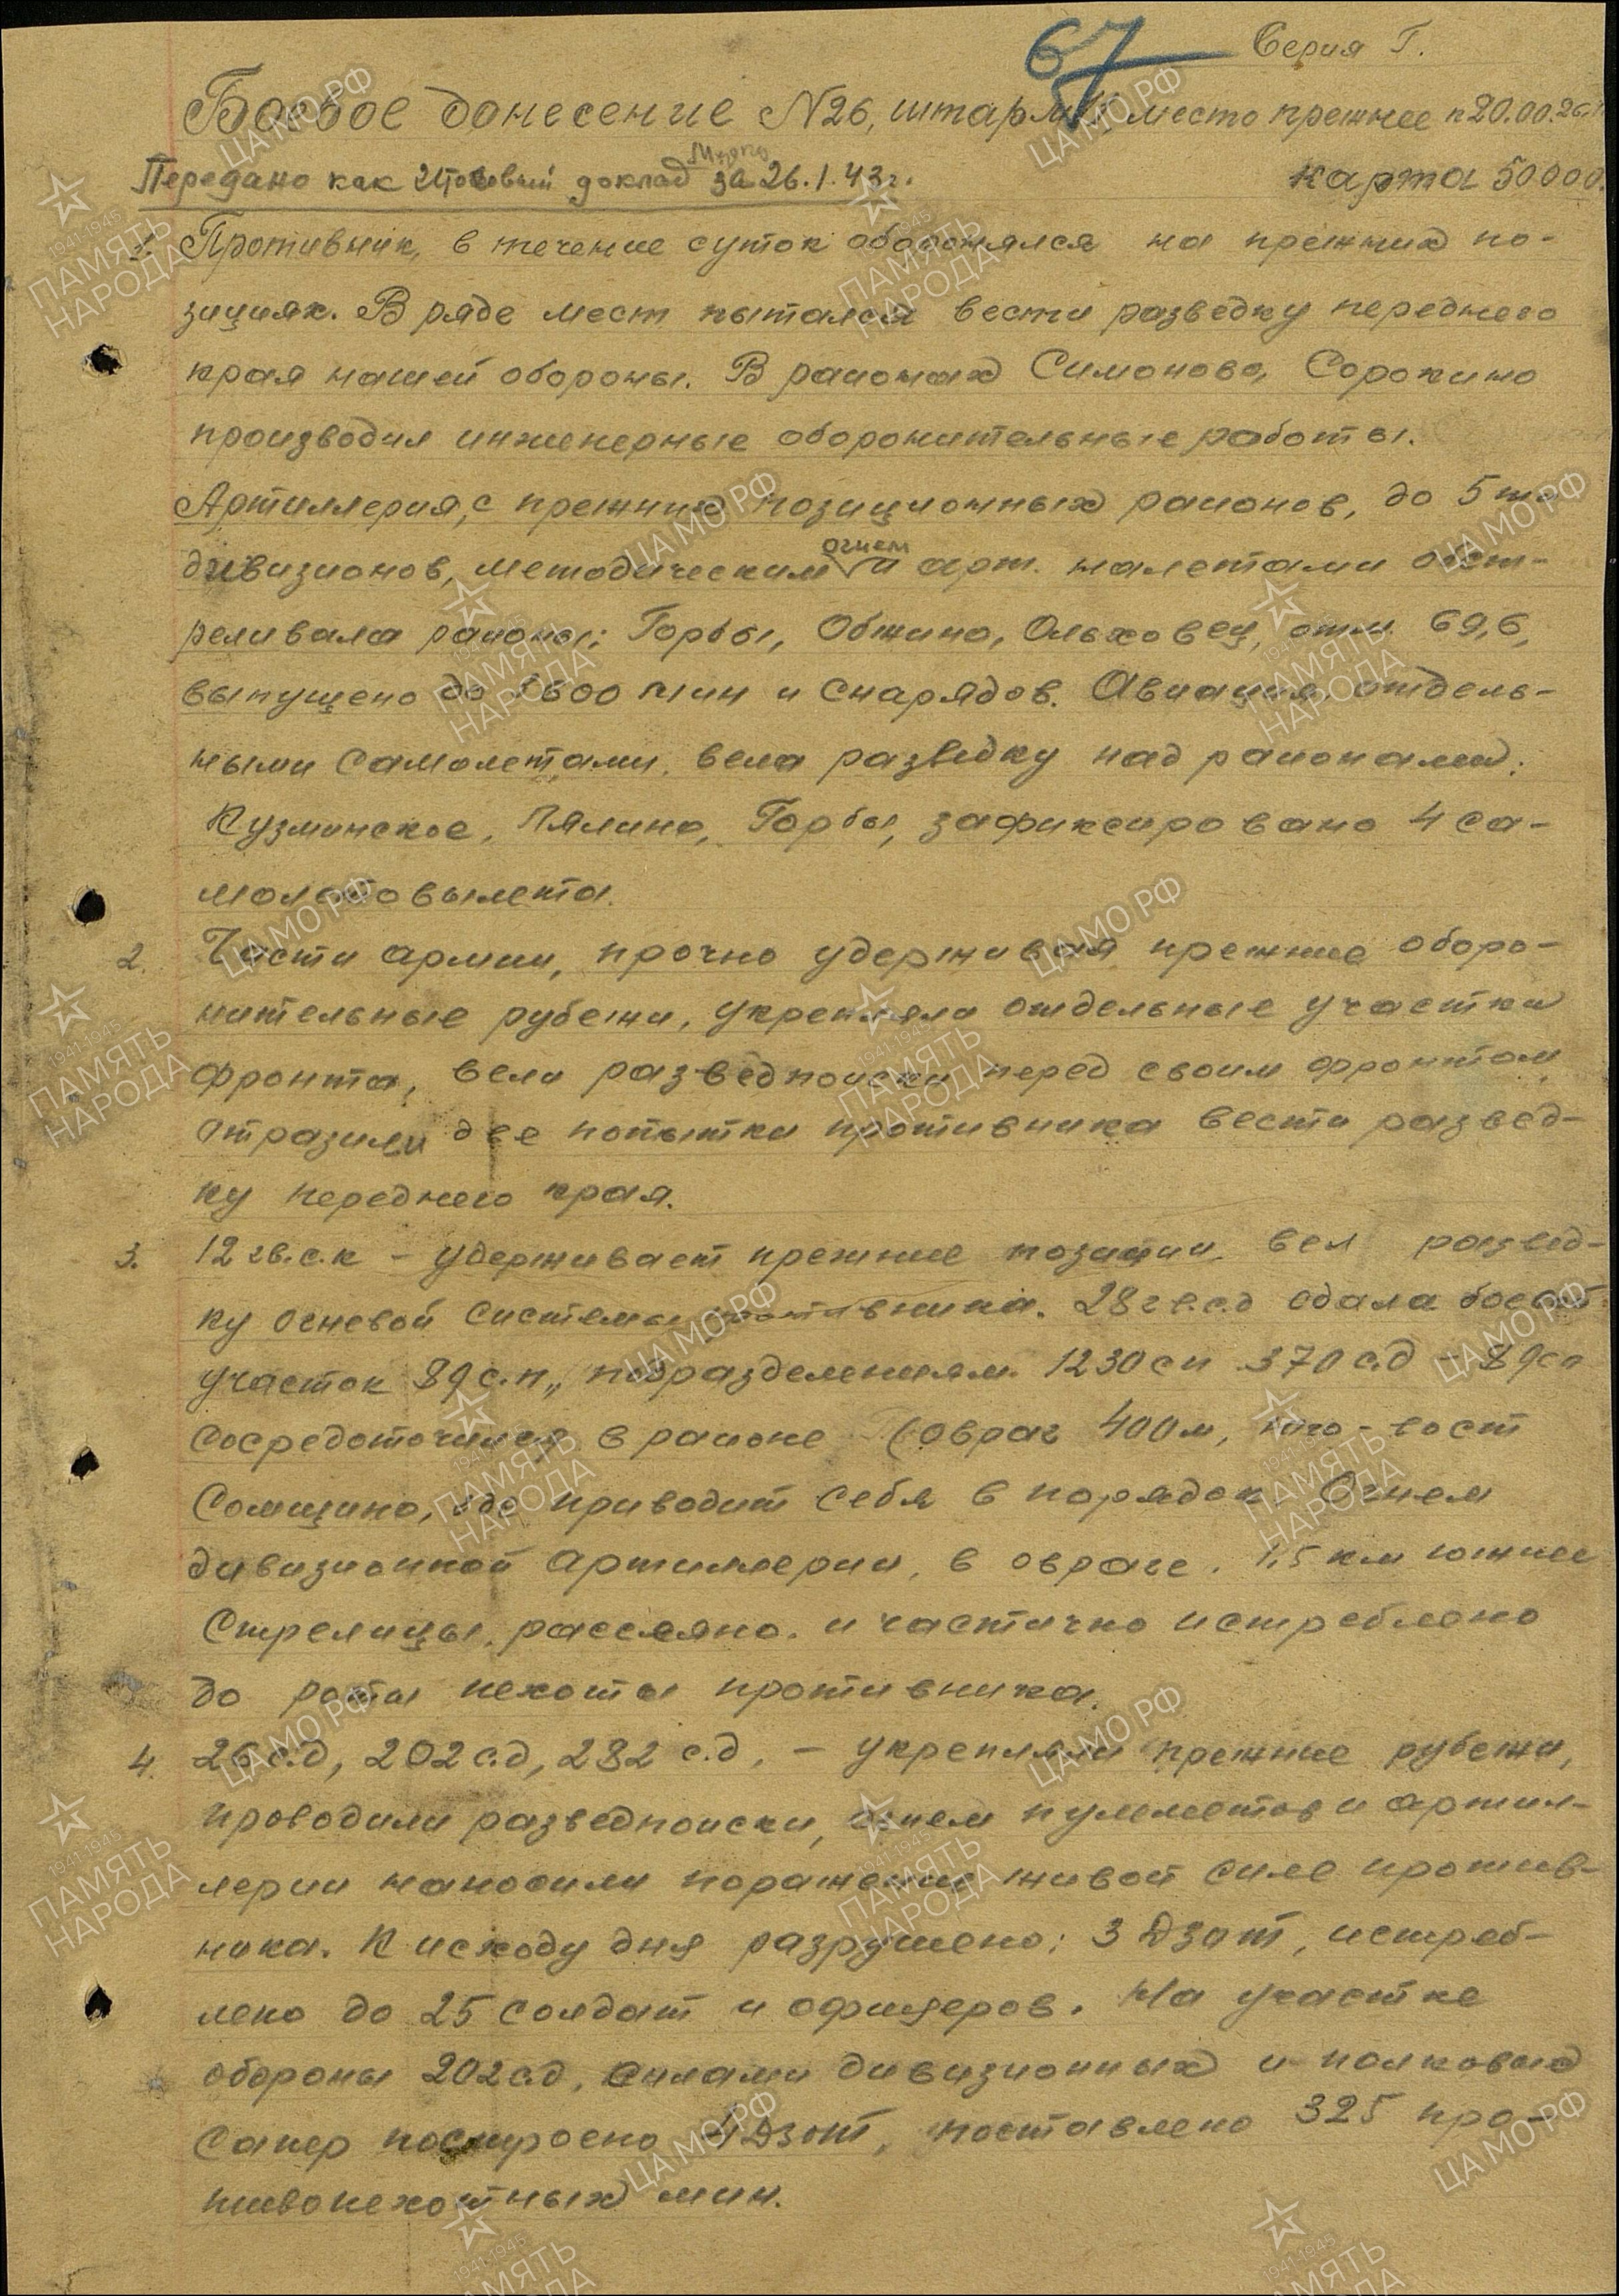 67 Серия Г.
Боевое донесение №26, штарм место прежнее к 20.00. 26.1
Передано как Итоговый доклад за 26.1.43г.
карта 50000.
1. Противник, в течение суток оборонялся на прежних по-
зициях. В ряде мест пытался вести разведку переднего
края нашей обороны. В районах Симоново, Сорокино
производил инженерные оборонительные работы.
Артиллерия, с прежних позиционных районов, до 5ти
дивизионов, методическим огнем и арт. налетами обст-
реливала районы: Горбы, Обжино, Ольховец, отм. 69,6,
выпущено до 1600 мин и снарядов. Авиация, отдель-
ными самолетами, вела разведку над районами:
Кузминское, Лялино, Горбы, зафиксировано 4 са-
молотовылета.
2. Части армии, прочно удерживая прежние оборо-
нительные рубежи, укрепляли отдельные участки
фронта, вели разведпоиски перед своим фронтом,
отразили две попытки противника вести развед-
ку переднего края.
3. 12 гв.с.к - удерживает прежние позиции, вел развед-
ку огневой системы противника. 28 гв.с.д сдала боевой
участок 89 с.п,, подразделениям 1230 сп 370 с.д - 89 сп
сосредоточился в районе (овраг 400 м, юго-вост
Сомшино, где приводит себя в порядок. Огнем
дивизионной артиллерии, в овраге, 1,5 км южнее
Стрелицы, рассеяно и частично истреблено
до роты пехоты противника.
4. 26 с.д, 202 с.д, 282 с.д, - укрепляли прежние рубежи,
проводили разведпоиски, огнем пулеметов и артил-
лерии наносили поражение живой силе против-
ника. К исходу дня разрушено: 3 Дзот, истреб-
лено до 25 солдат и офицеров. На участке
обороны 202 с.д, силами дивизионных и полковых
сапер построено 4 Дзот, поставлено 325 про-
тивопехотных мин.